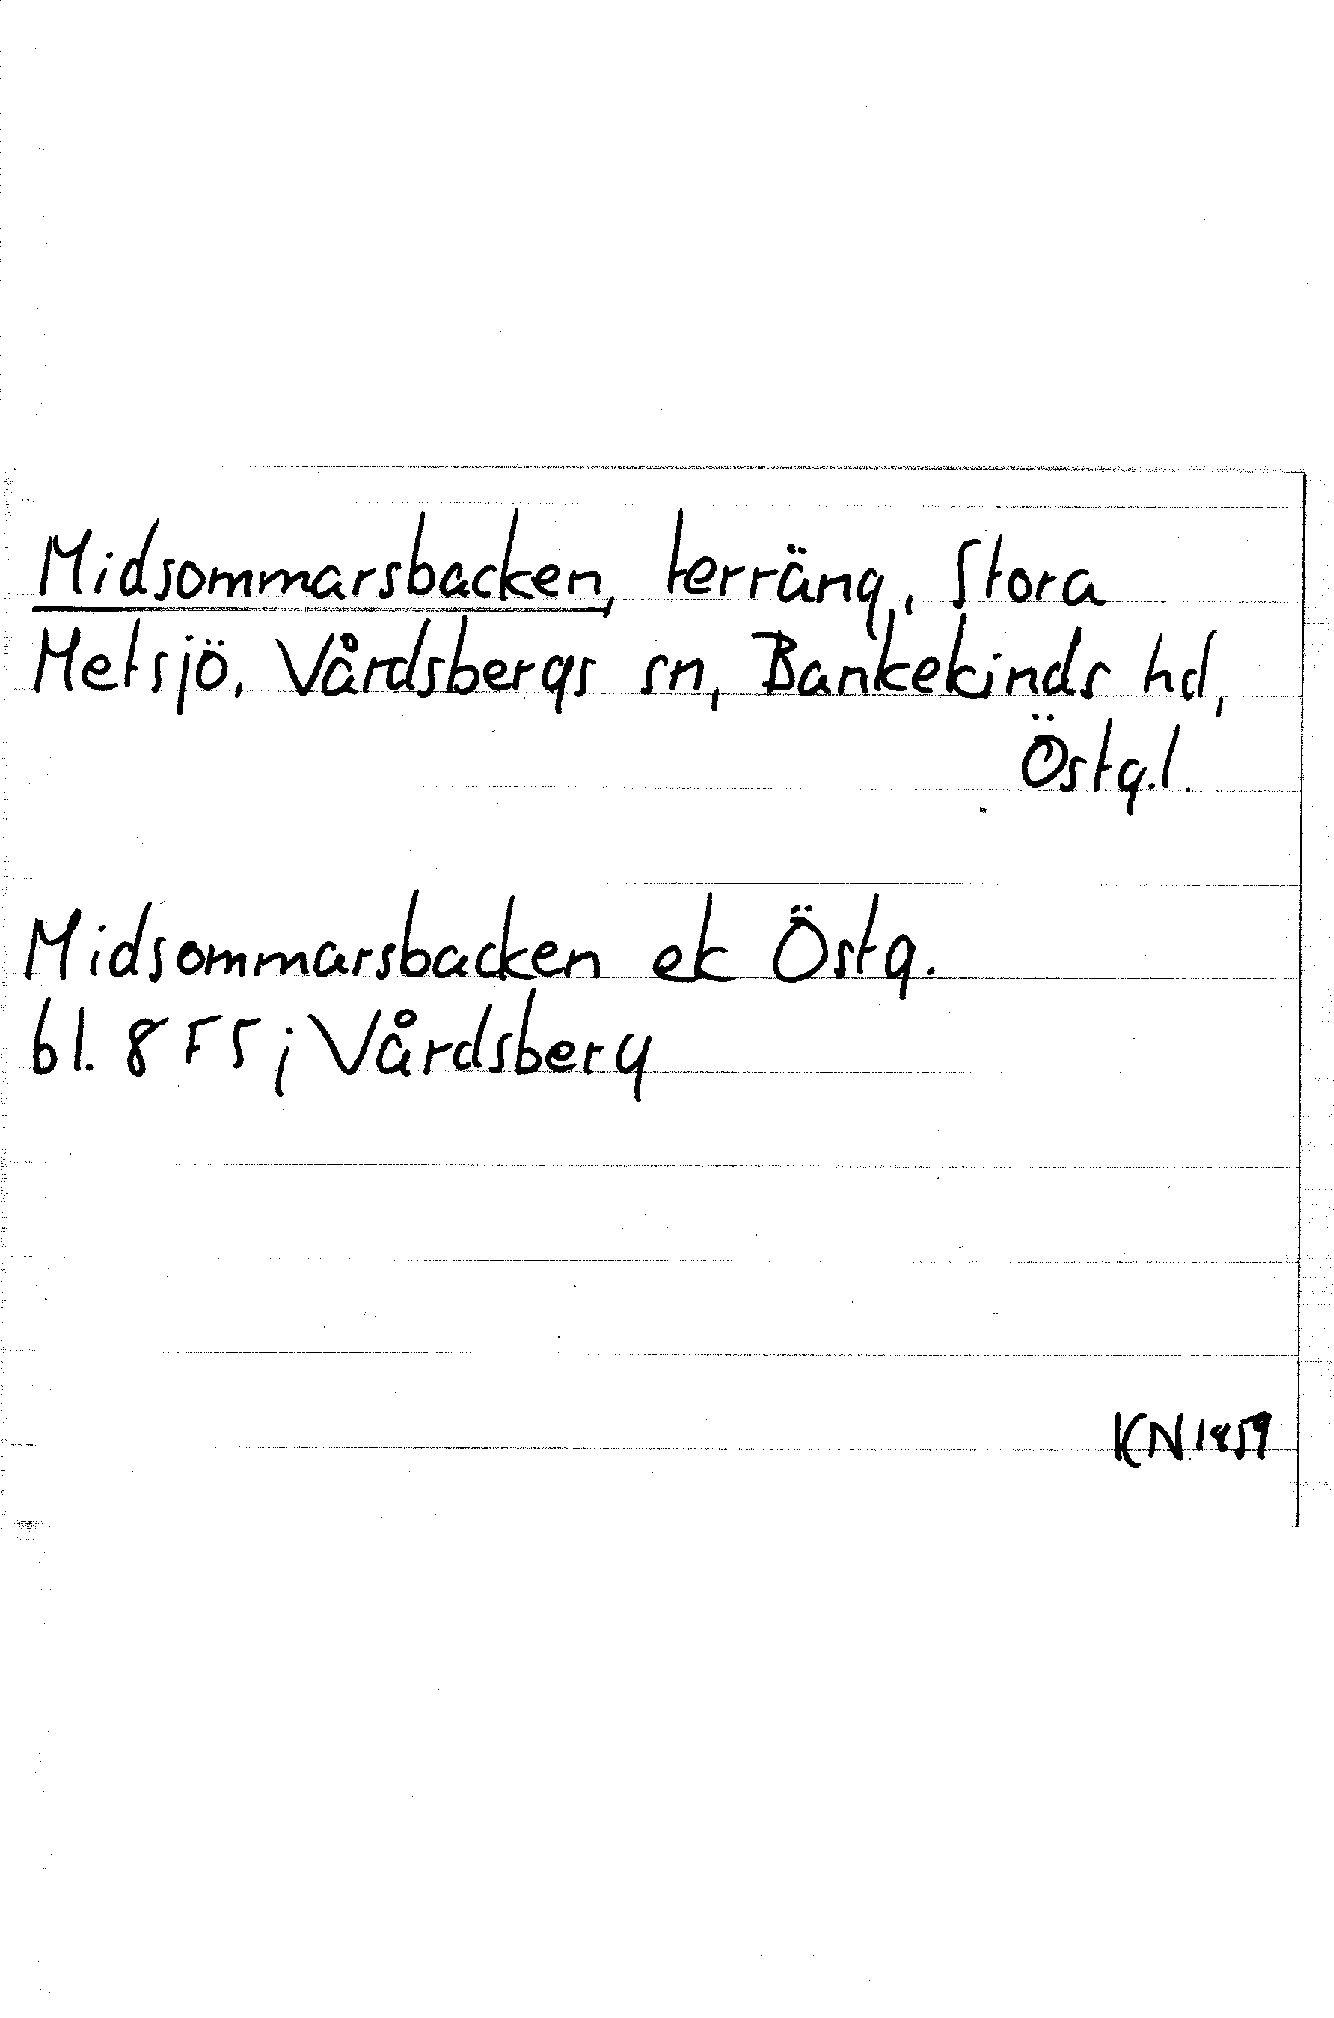 Midsommarsbacken, terräng, Stora
Metsjö, Vårdsbergs sn, Bankekinds hd,
Östg.l.
Midsommarsbacken ek Östg.
bl. 8 F5 i Vårdsberg
KN 1859